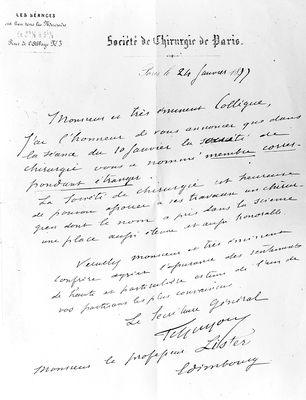 LES SÉANCES
ont lieu tous les Mercredis
Rue de l'Abbaye N.º 3
Société de Chirurgie de Paris.
Paris le 24 Janvier 18
Monsieur et très éminent Collègue,
J'ai l'honneur de vous annoncer que dans
la séance du 10 janvier la société de
chirurgie vous a nommé membre corres-
pondant étranger.
La Société de chirurgie est heureuse
de pouvoir associer à ses travaux un chirur-
gien dont le nom a pris dans la science
une place aussi élevée et aussi honorable.
Veuillez monsieur et très éminent
confrère agréer l'assurance des sentiments
de haute et particulière estime de l'un de
vos partisans les plus convaincus
Le Secrétaire Général
Monsieur le professeur Lister
Edimbourg